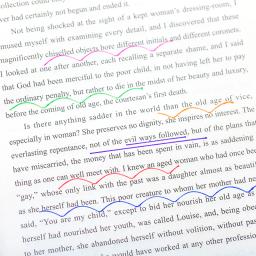 collection could
ver had certainly not begun and ended it.
Not being shocked at the sight of a kept woman's dressing-room, I
mused myself with examining every detail, and I discovered that these
magnificently chiselled objects bore different initials and different coronets.
I looked at one after another, each recalling a separate shame, and I said
that God had been merciful to the poor child, in not having left her to pay
the ordinary penalty, but rather to die in the midst of her beauty and luxury,
before the coming of old age, the courtesan's first death.
Is there anything sadder in the world than the old age of vice,
especially in woman? She preserves no dignity, she inspires no interest. The
everlasting repentance, not of the evil ways followed, but of the plans that
have miscarried, the money that has been spent in vain, is as saddening
thing as one can well meet with. I knew an aged woman who had once been
"gay," whose only link with the past was a daughter almost as beautiful
as she herself had been. This poor creature to whom her mother had ne
said, "You are my child," except to bid her nourish her old age as
herself had nourished her youth, was called Louise, and, being obe
to her mother, she abandoned herself without volition, without pas
would have worked at any other profession